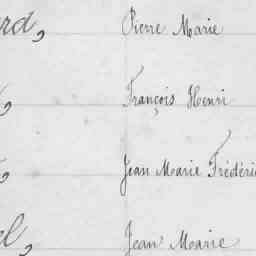 rd, Pierre Marie
François Henri
Jean Marie Frédéri
el, Jean Marie